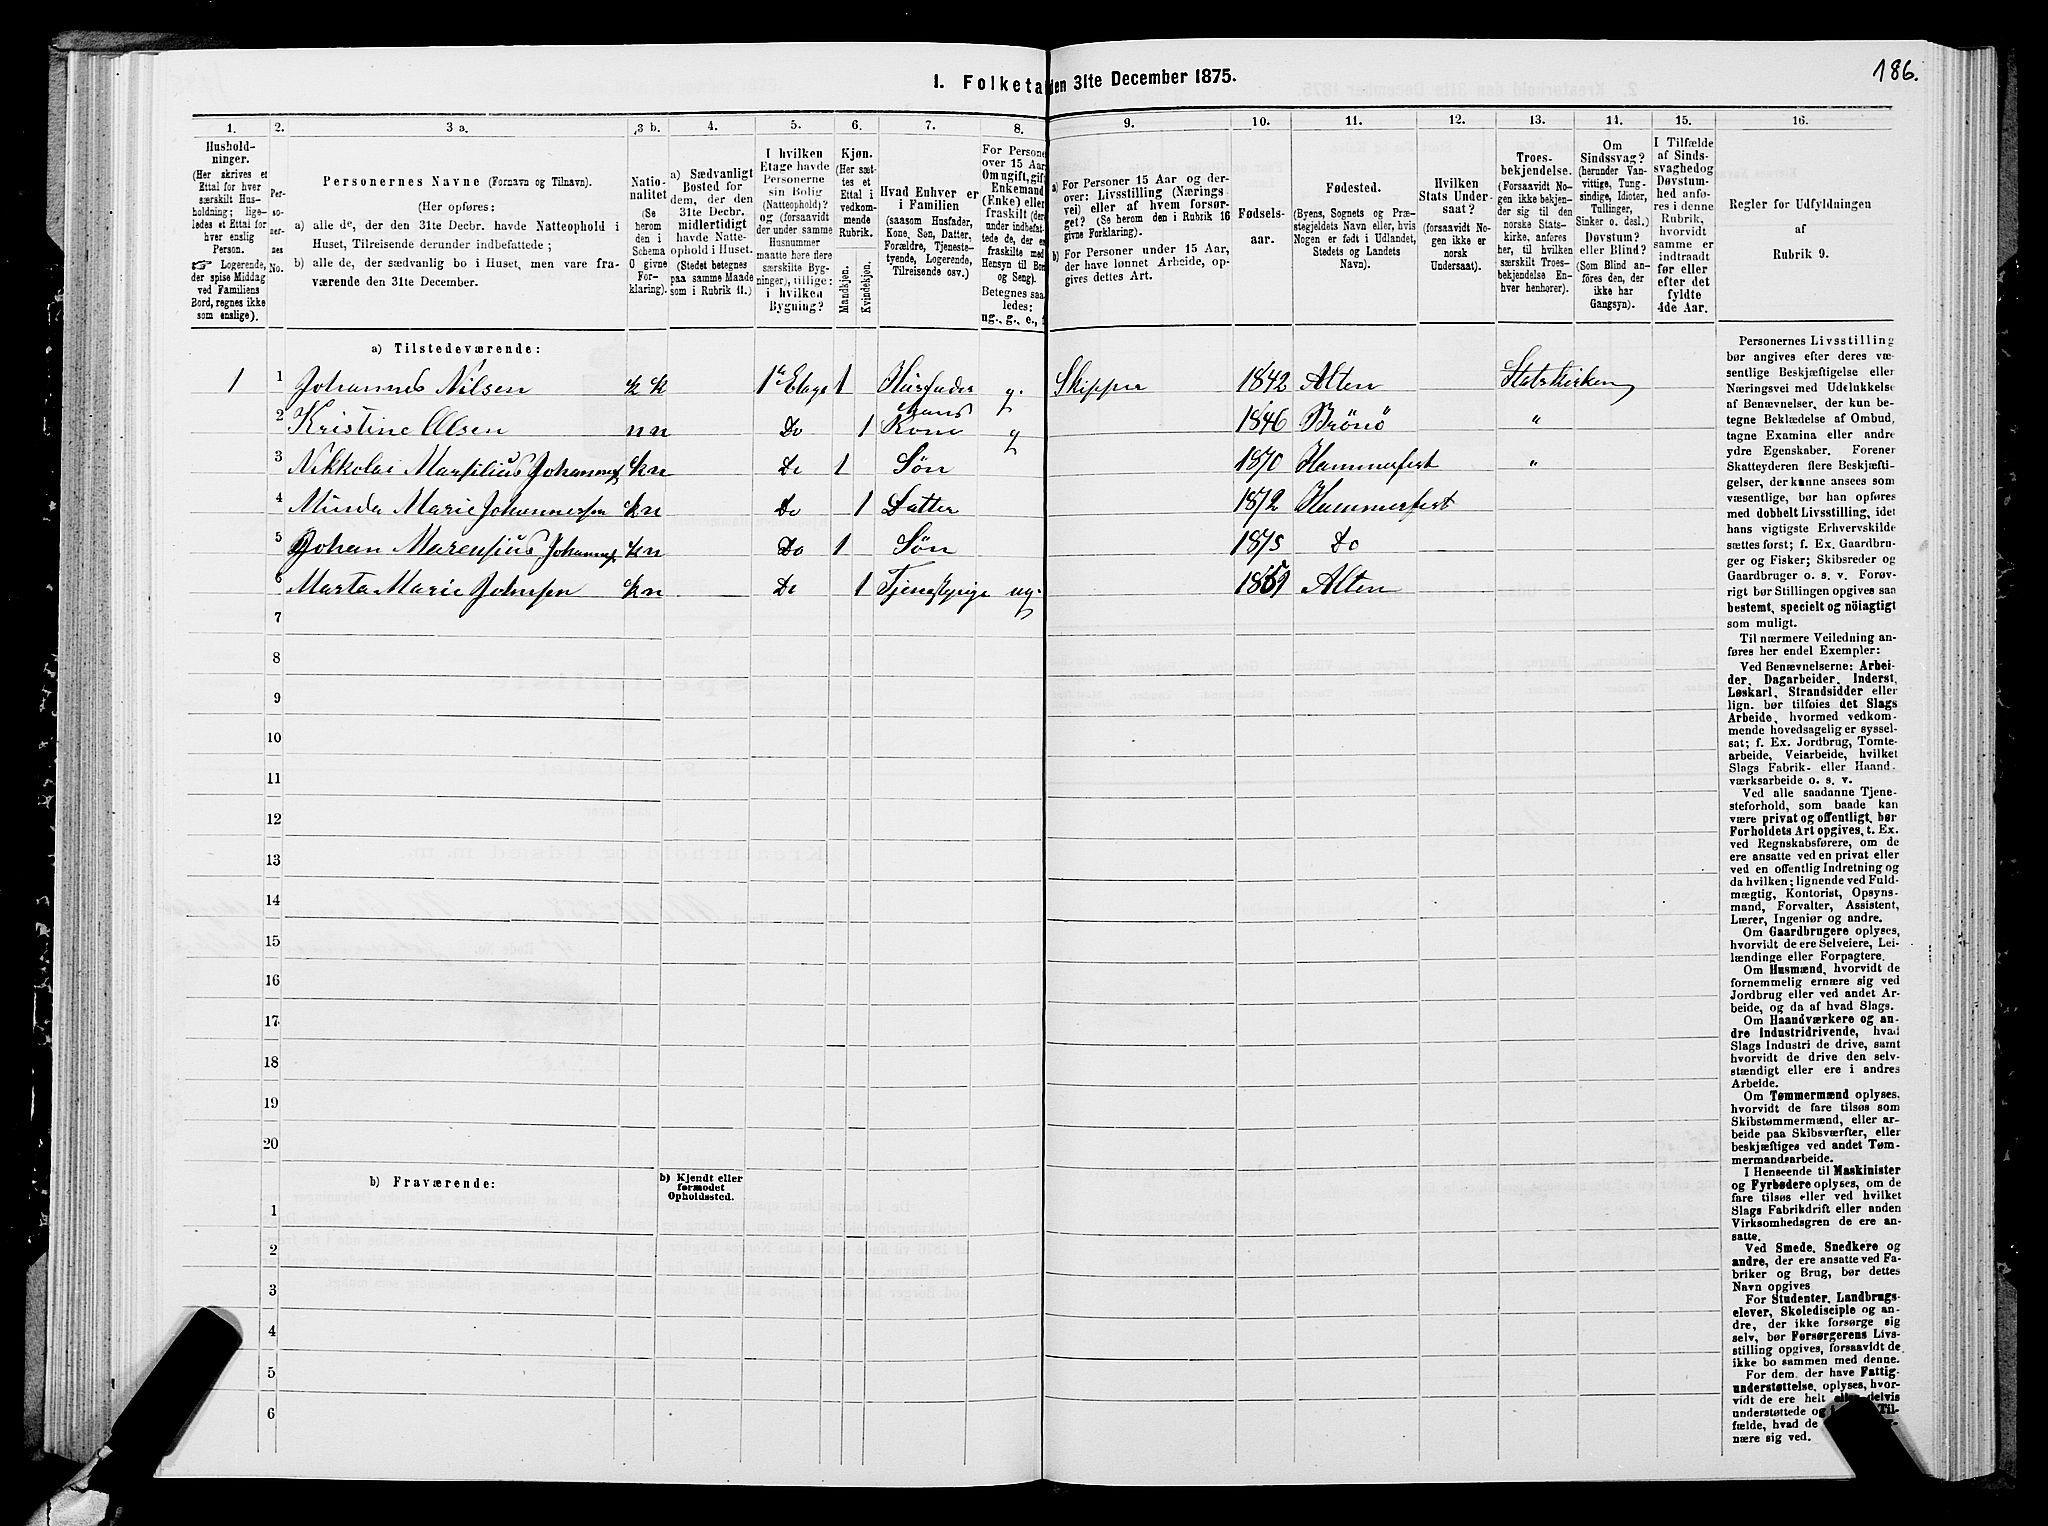 186.
1. Folketal den 31te December 1875.
1. 2. 3 a. 3 b. 4. 5. 6. 7. 8. 9. 10. 11. 12. 13. 14. 15. 16.
Hushold-
ninger.
(Her skrives et
Ettal for hver
særskilt Hus-
holdning; lige-
ledes et Ettal for
hver enslig
Person.
☞ Logerende,
der spise Middag
ved Familiens
Bord, regnes ikke
som enslige).
Per-
so-
ner-
nes
No.
Personernes Navne (Fornavn og Tilnavn).
(Her opføres:
a) alle de, der den 31te Decbr. havde Natteophold i
Huset, Tilreisende derunder indbefattede;
b) alle de, der sædvanlig bo i Huset, men vare fra-
værende den 31te December.
Natio-
nalitet
(Se
herom
den i
Schema
O givne
For-
klaring).
a) Sædvanligt
Bosted for
dem, der den
31te Decbr.
midlertidigt
havde Natte-
ophold i Huset.
(Stedet betegnes
paa samme Maade
som i Rubrik 11.)
I hvilken
Etage havde
Personerne
sin Bolig
(Natteophold)?
og (forsaavidt
der under samme
Husnummer
maatte høre flere
særskilte Byg-
ninger), tillige:
i hvilken
Bygning?
Kjøn.
(Her sæt-
tes et
Ettal i
vedkom-
mende
Rubrik.
Mandkjøn.
Kvindekjøn.
Hvad Enhver er
i Familien
(saasom Husfader,
Kone, Søn, Datter,
Forældre, Tjeneste-
tyende, Logerende,
Tilreisende osv.)
For Personer
over 15 Aar
Om ugift, gift,
Enkemand
(Enke) eller
fraskilt (der-
under indbefat-
tede de, der er
fraskilte med
Hensyn til Bord
og Seng).
Betegnes saa-
ledes:
ug., g., e.,
a) For Personer 15 Aar og der-
over: Livsstilling (Nærings-
vei) eller af hvem forsør-
get? (Se herom den i Rubrik 16
givne Forklaring).
b) For Personer under 15 Aar,
der have lønnet Arbeide, op-
gives dettes Art.
Fødsels-
aar.
Fødested.
(Byens, Sognets og Præ-
stegjeldets Navn eller, hvis
Nogen er født i Udlandet,
Stedets og Landets
Navn).
Hvilken
Stats Under-
saat?
(forsaavidt No-
gen ikke er
norsk
Undersaat).
Troes-
bekjendelse.
(Forsaavidt No-
gen ikke bekjen-
der sig til den
norske Stats-
kirke, anføres
her, til hvilken
særskilt Troes-
bekjendelse En-
hver henhører).
Om
Sindssvag?
(herunder Van-
vittige, Tung-
sindige, Idioter,
Tullinger,
Sinker o. desl.)
Døvstum?
eller Blind?
(Som Blind an-
føres den, der
ikke har
Gangsyn).
I Tilfælde
af Sinds-
svaghed og
Døvstum-
hed anfø-
res i denne
Rubrik,
hvorvidt
samme er
indtraadt
før eller
efter det
fyldte
4de Aar.
Regler for Udfyldningen
af
Rubrik 9.
a) Tilstedeværende:
1 1 Johannes Nilsen k k 1ste Etage 1 Husfader g. Skipper 1842 Alten Statskirken
2 Kristine Olsen n n Do 1 Hans Kone g 1846 Brönö "
3 Nikkolai Marsilius Johannes k n Do 1 Søn 1870 Hammerfest "
4 Minda Marie Johannessen k n Do 1 Datter 1872 Hammerfest
5 Johan Marensius Johannes k n Do 1 Søn 1875 Do
6 Marta Marie Johnsen k n Do 1 Tjenestepige ug. Alten
7
8
9
10
11
12
13
14
15
16
17
18
19
20
b) Fraværende:
b) Kjendt eller
formodet
Opholdssted.
1
2
3
4
5
6
Personernes Livsstilling
bør angives efter deres væ-
sentlige Beskjæftigelse eller
Næringsvei med Udelukkelse
af Benævnelser, der kun be-
tegne Beklædelse af Ombud,
tagne Examina eller andre
ydre Egenskaber. Forener
Skatteyderen flere Beskjæfti-
gelser, der kunne ansees som
væsentlige, bør han opføres
med dobbelt Livsstilling, idet
hans vigtigste Erhvervskilde
sættes først; f. Ex. Gaardbru-
ger og Fisker; Skibsreder og
Gaardbruger o. s. v. Forøv-
rigt bør Stillingen opgives saa
bestemt, specielt og nöiagtigt
som muligt.
Til nærmere Veiledning an-
føres her endel Exempler:
Ved Benævnelserne: Arbei-
der, Dagarbeider, Inderst,
Løskarl, Strandsidder eller
lign. bør tilføies det Slags
Arbeide, hvormed vedkom-
mende hovedsagelig er syssel-
sat; f. Ex. Jordbrug, Tomte-
arbeide, Veiarbeide, hvilket
Slags Fabrik- eller Haand-
værksarbeide o. s. v.
Ved alle saadanne Tjene-
steforhold, som baade kan
være privat og offentligt, bør
Forholdets Art opgives, t. Ex.
ved Regnskabsførere, om de
ere ansatte ved en privat eller
ved en offentlig Indretning og
da hvilken; lignende ved Fuld-
mægtig, Kontorist, Opsyns-
mand, Forvalter, Assistent,
Lærer, Ingeniør og andre.
Om Gaardbrugere oplyses,
hvorvidt de ere Selveiere, Lei-
lændinge eller Forpagtere.
Om Husmænd, hvorvidt de
fornemmelig ernære sig ved
Jordbrug eller ved andet Ar-
beide, og da af hvad Slags.
Om Haandværkere og an-
dre Industridrivende, hvad
Slags Industri de drive, samt
hvorvidt de drive den selv-
stændigt eller ere i andres
Arbeide.
Om Tømmermænd oplyses,
hvorvidt de fare tilsøs som
Skibstømmermænd, eller ar-
beide paa Skibsværfter, eller
beskjæftiges ved andet Tøm-
mermandsarbeide.
I Henseende til Maskinister
og Fyrbødere oplyses, om de
fare tilsøs eller ved hvilket
Slags Fabrikdrift eller anden
Virksomhedsgren de ere an-
satte.
Ved Smede, Snedkere og
andre, der ere ansatte ved Fa-
briker og Brug, bør dettes
Navn opgives
For Studenter, Landbrugs-
elever, Skoledisciple og an-
dre, der ikke forsørge sig
selv, bør Forsørgerens Livs-
stilling opgives, forsaavidt de
ikke bo sammen med denne.
For dem, der have Fattig-
understøttelse, oplyses, hvor-
vidt de ere helt eller delvis
understøttede og Til-
fælde, hvad de
nære sig ved.